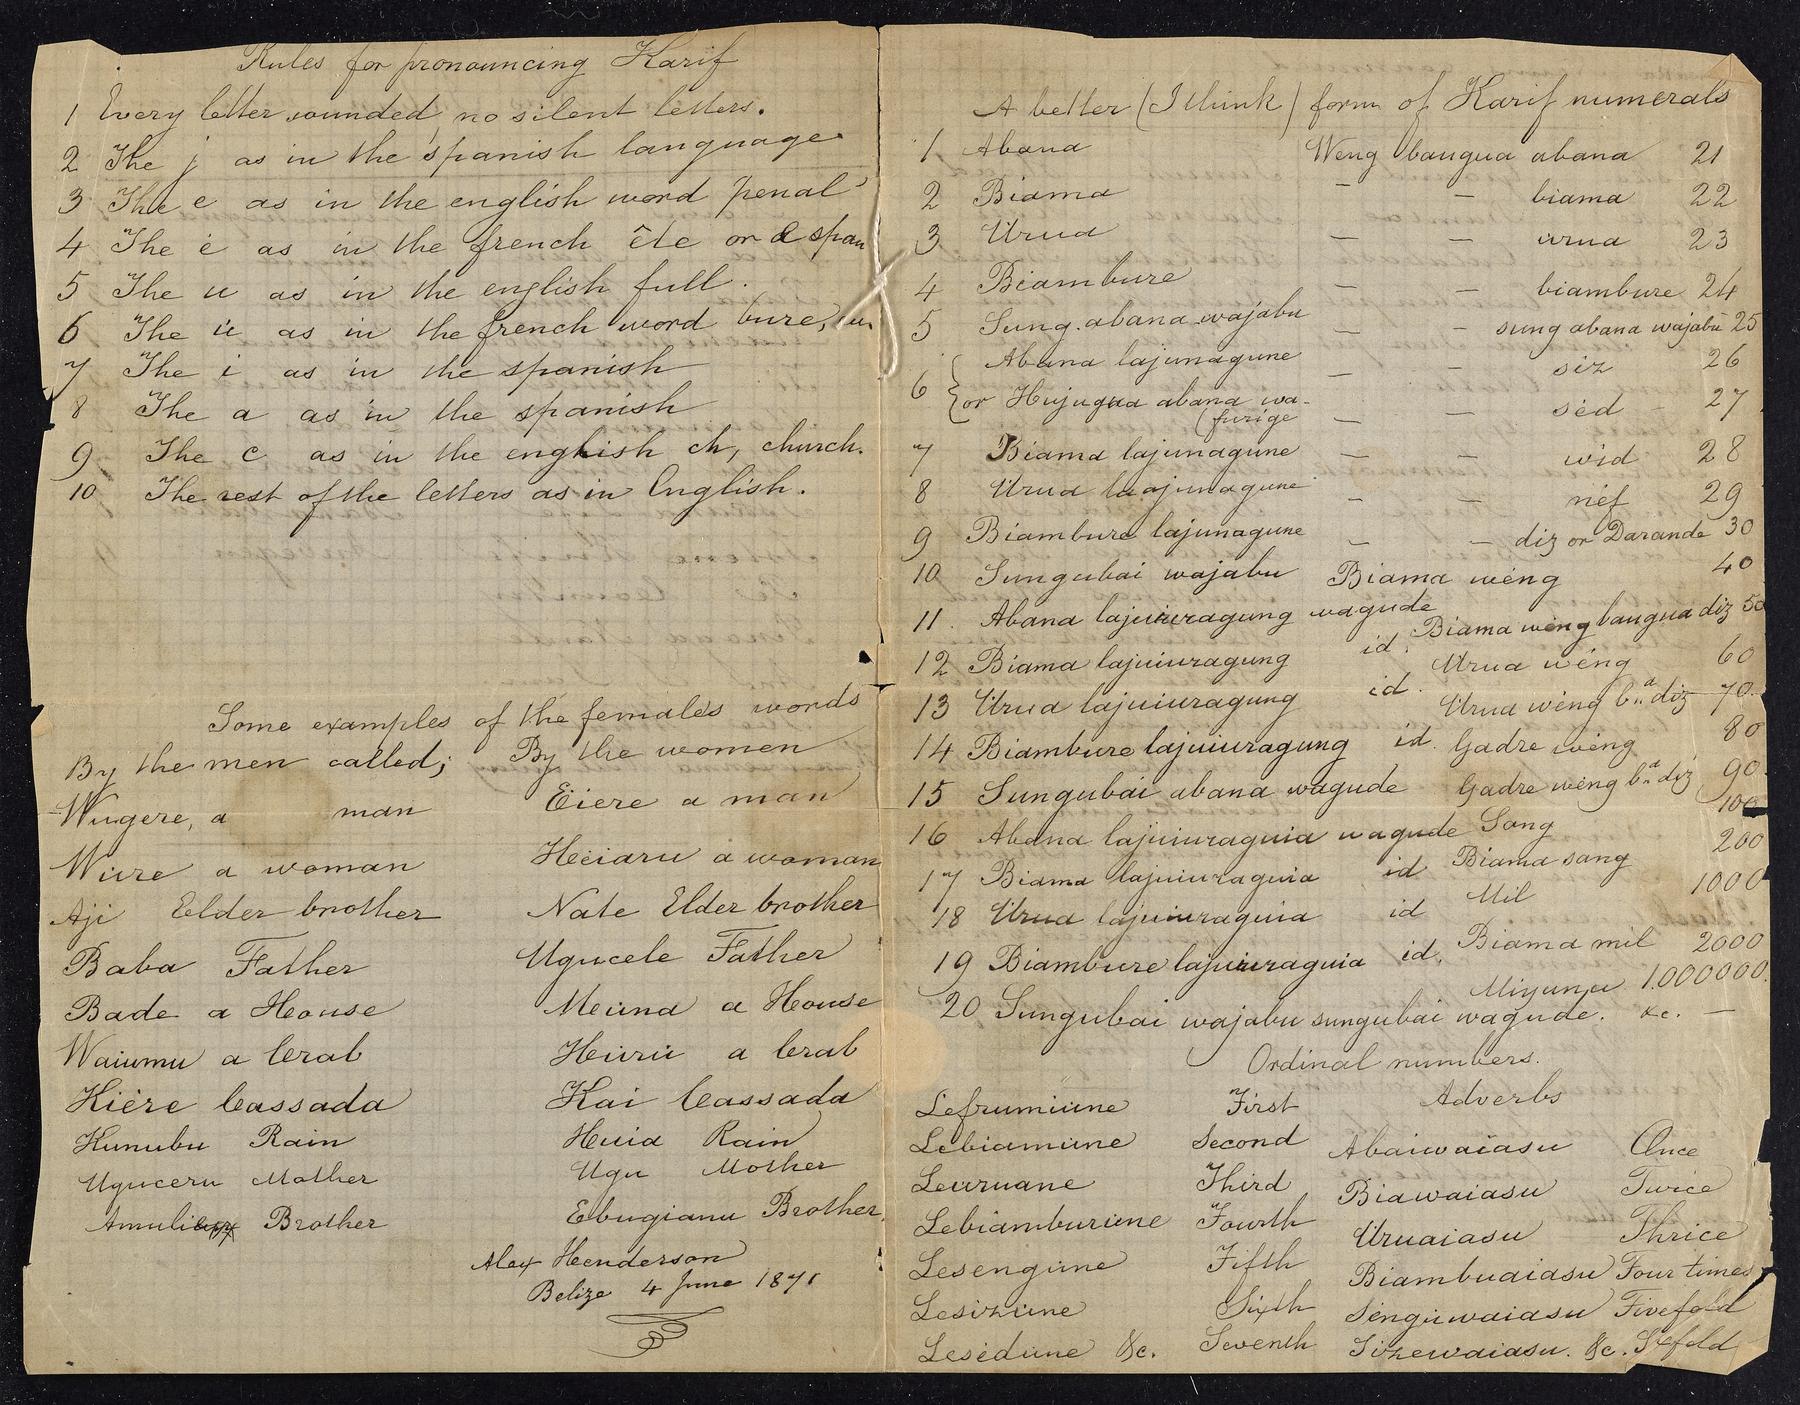 Rules for pronouncing Karif
1 Every letter sounded, no silent letters.
2 The j as in the spanish language
3 The e as in the english word penal
4 The é as in the french être or e span
5 The u as in the english full.
6 The ü as in the french word bure,
7 The i as in the spanish
8 The a as in the spanish
9 The c as in the english ch, church.
10 The rest of the letters as in English.
Some examples of the females words
By the men called; By the women
Wügere, a man Eiere a man
Würe a woman Hëiaru a woman
Aji Elder brother Nate Elder brother
Baba Father Ugucele Father
Bade a House Meüna a House
Waiumu a Crab Hürü a Crab
Kiére Cassada Kai Cassada
Kunubu Rain Huia Rain
Uguceru Mother Ugu Mother
Amuli Brother Ebugianu Brother
Alex Henderson
Belize 4 June 1871
A better (I think) form of Karif numerals
1 Abana Weng bangua abana 21
2 Biama — — biama 22
3 Ürua — — ürua 23
4 Biambure — — biambure 24
5 Sung abana wajabu — — sung abana wajabu 25
6 { Abana lajunagune — — siz 26
or Hujugua abana wa- — — séd 27
(furige
7 Biama lajunagune — — wid 28
8 Ürua laajunagune — — néf 29
9 Biambure lajunagune — — diz or Darande 30
10 Sungubai wajabu Biama wéng 40
11. Abana lajuiuragung wagude Biama wéng bangua diz 50
12 Biama lajuiuragung id. Ürua wéng 60
13 Ürua lajuiuragung id. Ürua wéng b"a diz 70.
14 Biambure lajuiuragung id. Gadre wéng 80
15 Sungubai abana wagude Gadre wéng b"a diz 90.
100
16 Abana lajuiuraguia wagude Sang
17 Biama lajuiuraguia id Biama sang 200
18 Ürua lajuiuraguia id Mil 1000
19 Biambure lajuiuraguia id. Biama mil 2000
Miyunu 1.000000.
20 Sungubai wajabu sungubai wagude. &c. —
Ordinal numbers.
Adverbs
Lefrumiüne First
Lebiamüne Second Abaiwaiasu Once
Leüruane Third Biawaiasu Twice
Lebiamburüne Fourth Üruaiasu Thrice
Lesengüne Fifth Biambuaiasu Four times
Lesizüne Sixth Sengüwaiasu Fivefold
Lesedüne &c. Seventh Sizewaiasu. &c. Sixfold